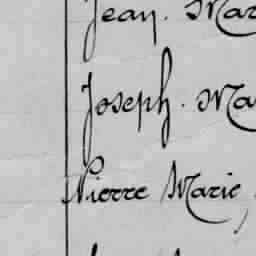 Jean. Mar
Joseph. Ma
Pierre Marie,